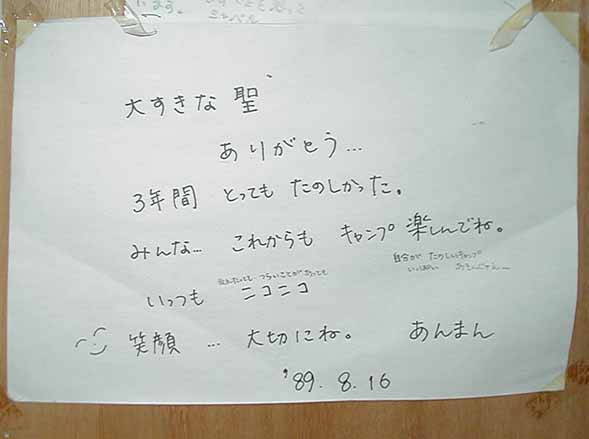 います。
大すきな 聖
ありがとう...
3年間 とっても たのしかった。
みんな... これからも キャンプ 楽しんでね。
自分が たのしいキャンプ
つらいことがあっても
いっつも ニコニコ
笑顔 ... 大切にね。 あんまん
'89. 8. 16